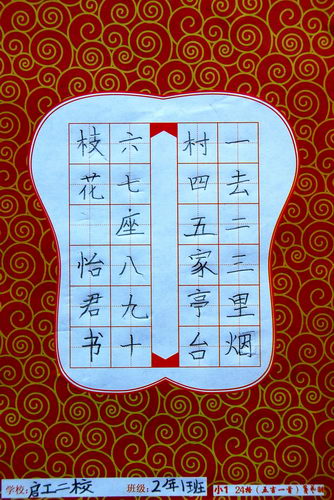 一去二三里烟
村四五家亭台
六七座八九十
枝花
怡君书
学校:启工二校
班级:2年1班
小1 24格(五言一首)